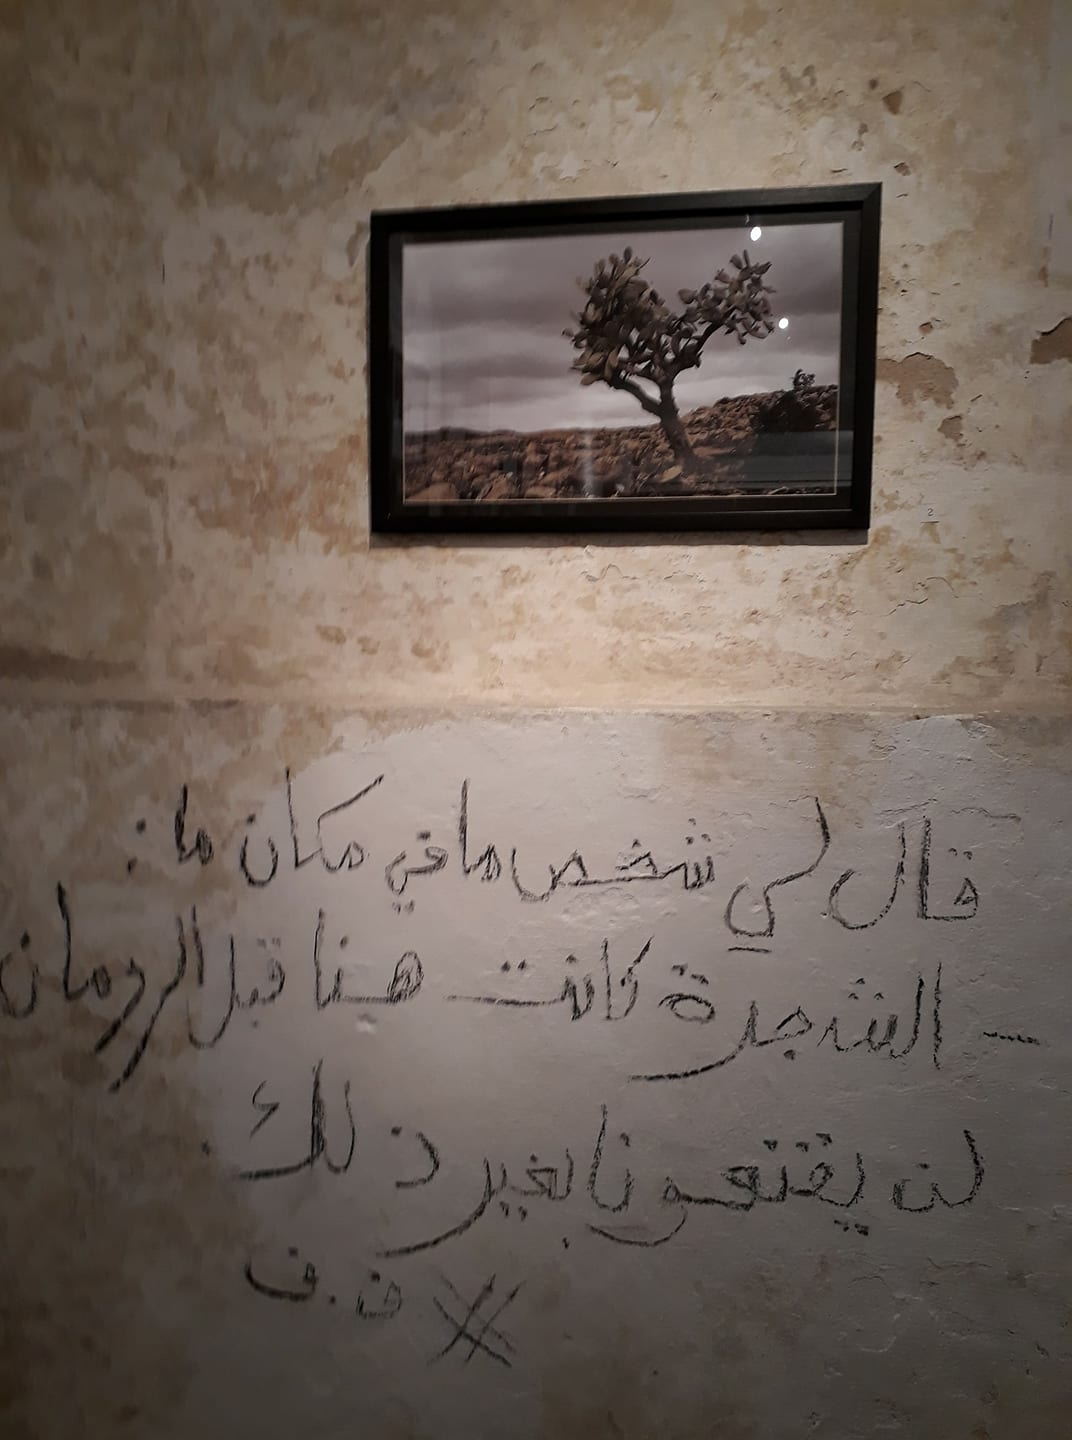 2
قال لي شخص ما في مكان ما:
- الشجرة كانت هنا قبل الرومان
لن يقنعونا بغير ذلك.
ف. ف